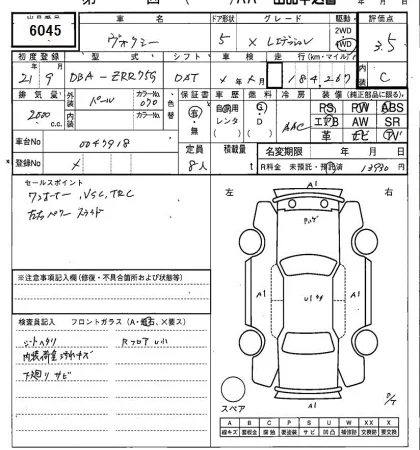 出品番号 車名 ドア形状 グレード 駆動 評価点
6045 ヴォクシー 5 X Lエディション 2WD 4WD 3.5
初度登録 型式 シフト 車検 走行(km・マイル) 内装
21年9月 DBA-ZRR75G DAT ×年×月 184,267 C
排気量 外装色 カラーNo. 色替 保証書 車歴 燃料 冷房 装備(純正部品に限る)
2000c.c. パール 070 有・無 自家用 レンタ G D AAC PS PW ABS
内装 カラーNo. エアB AW SR
革 ナビ TV
車台No 0047918 定員 積載量 名変期限 年 月 日
登録No × 8人 t R料金 未預託・預託済 13930円
セールスポイント
ワンオーナー、VSC、TRC
左右パワースライド
※注意事項記入欄(修復・不具合箇所および状態等)
検査員記入 フロントガラス(A・飛石・×要ス)
シートヘタリ RフロアUハ
内装荷室スリキズ
下廻りサビ
左 右
A1
A1 A1
A1
スペア
A B C P S U W X XX
線キズ 要板金 腐蝕 要塗装 サビ 凹 補修跡 交換跡 要交換